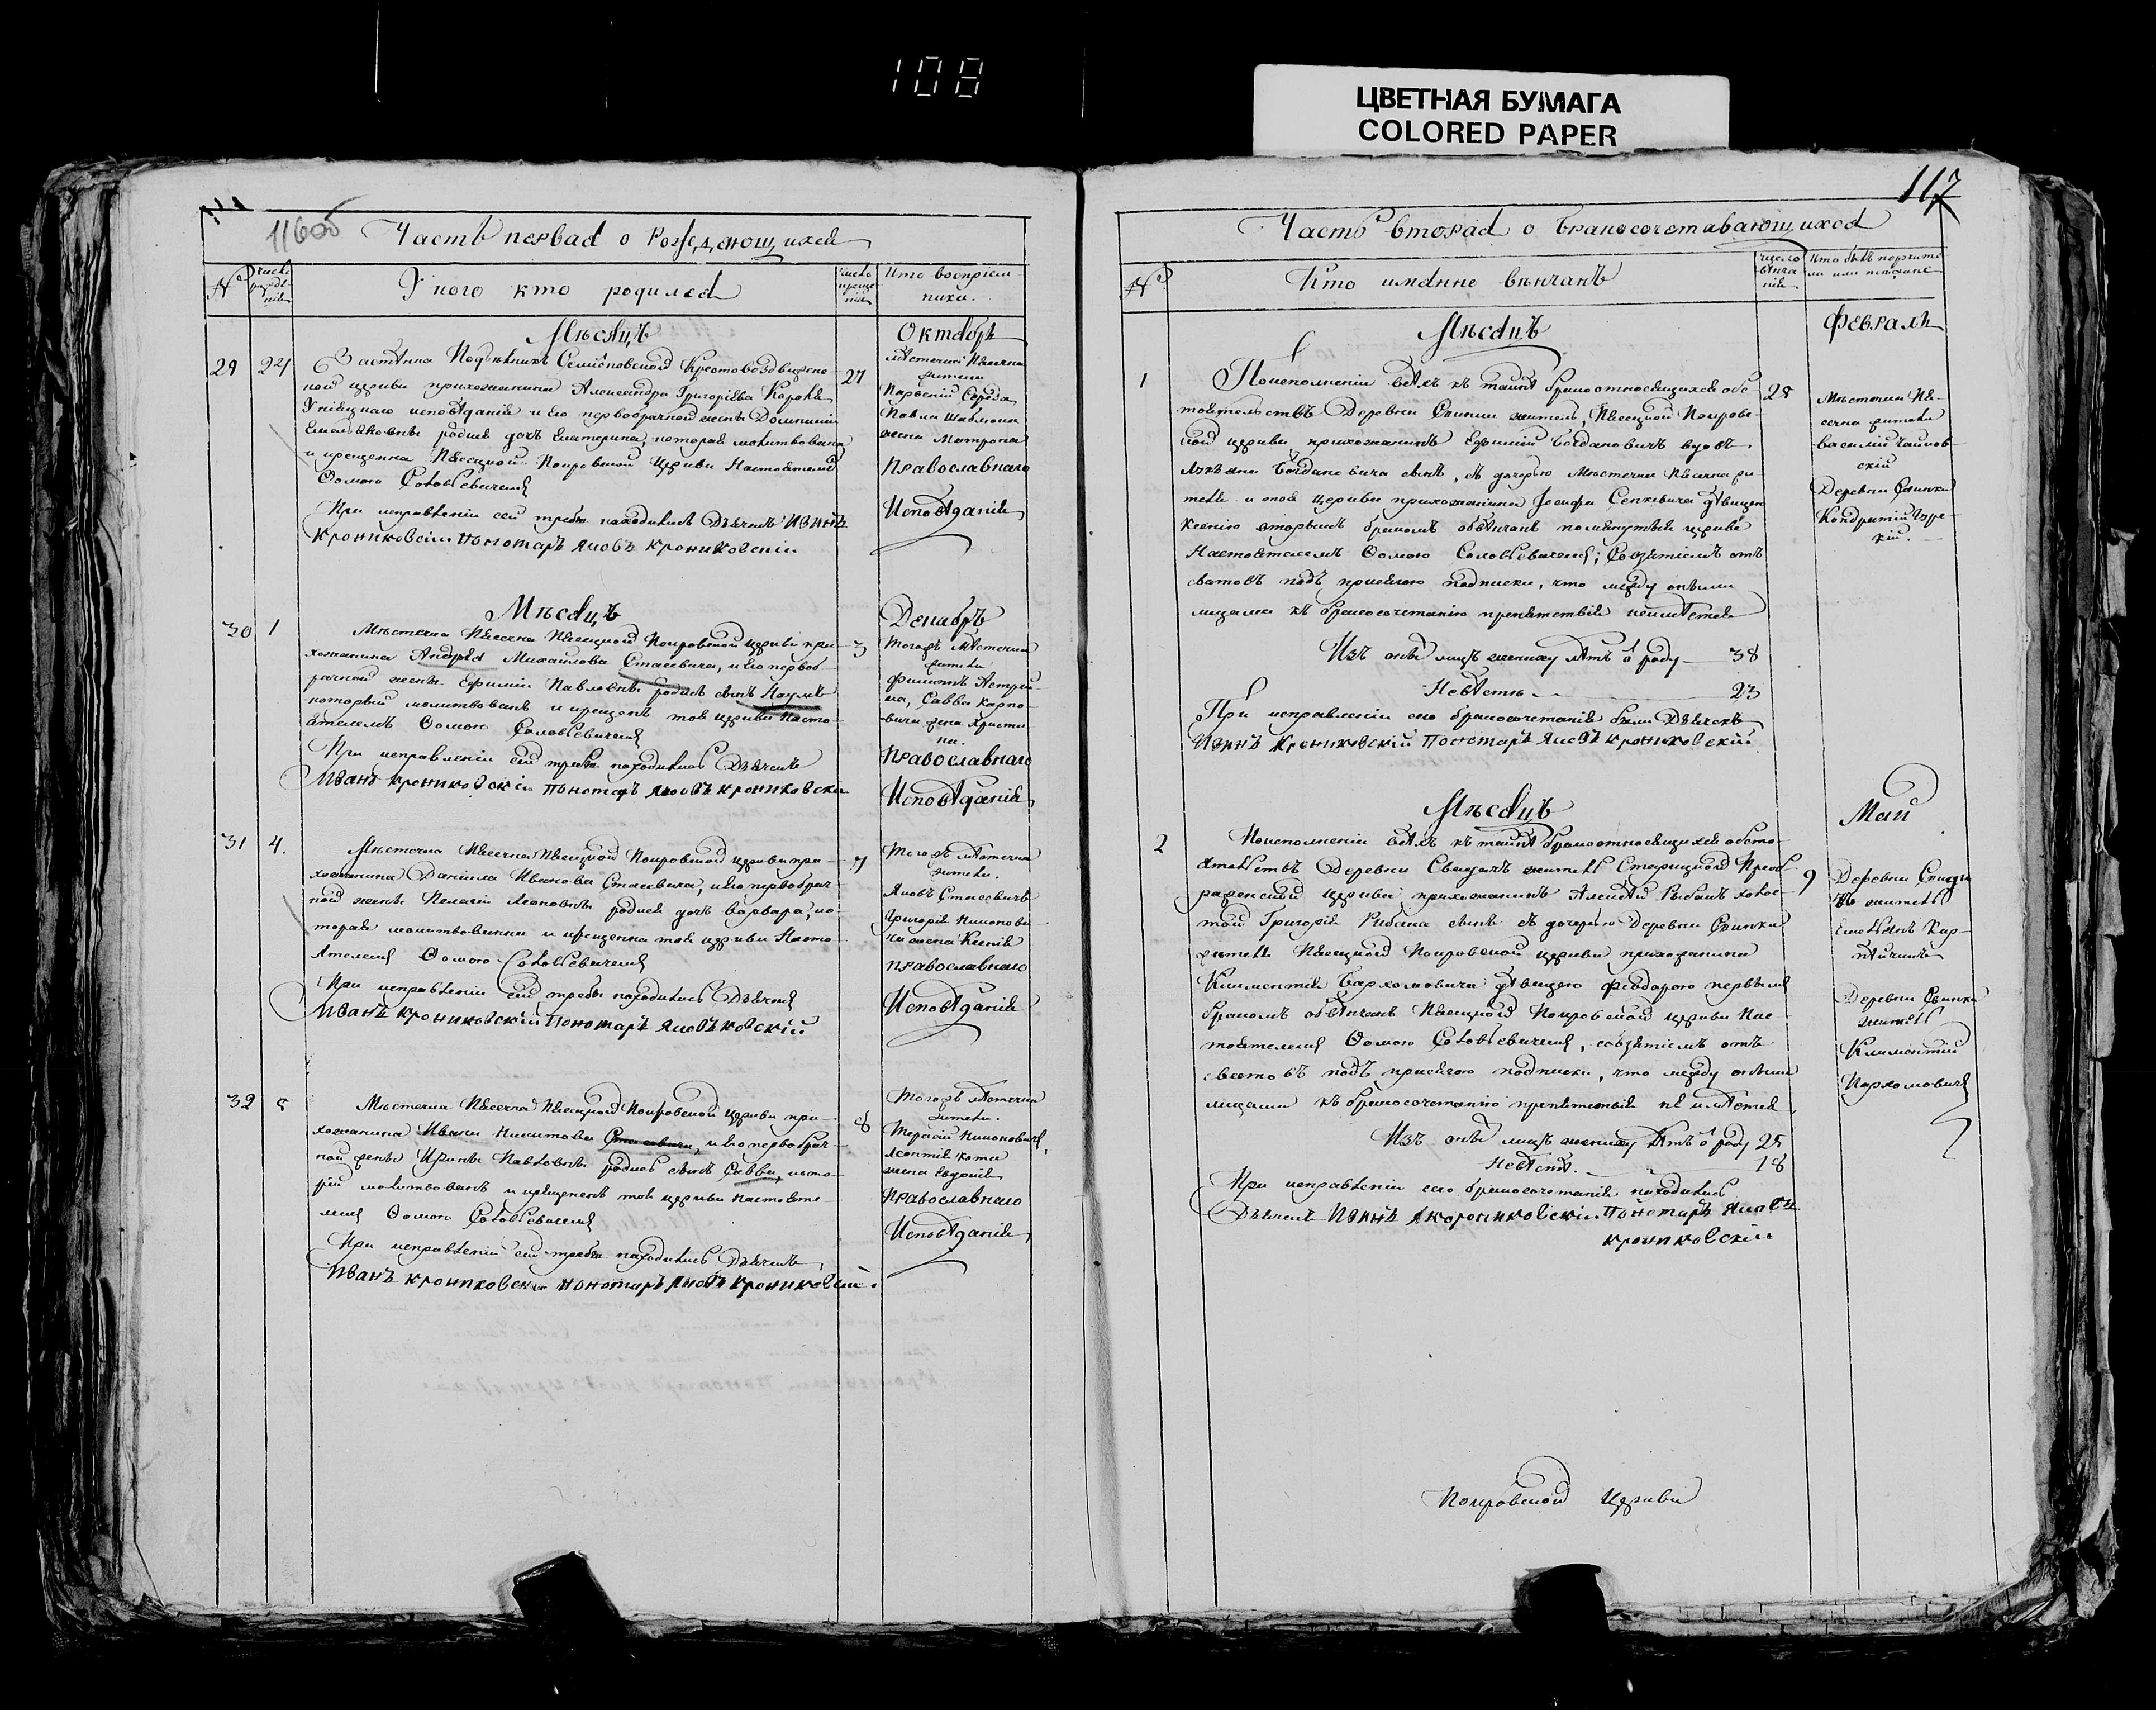 108
ЦВЕТНАЯ БУМАГА
COLORED PAPER
116об
Часть первая о рождающихся
№
число рожде-
нія
У кого кто родился
число
креще-
нія
Кто воспріем-
ники.
Мѣсяцъ
Октябрь
29
24
27
Александра Григоріева
родися дочь Екатерина, которая молитвована
и крещенна Пѣсецкой Покровской Церкви Настоятелем
Ѳомою Соловьевичемъ
При исправленіи сей требы находились Дьячокъ Иванъ
Крониковскій Пономарь Яковъ Крониковскій
Павла
жена Матрона
Православнаго
Исповѣданія
Мѣсяцъ
Декабрь
30
1
3
Мѣстечка Пѣсечна Пѣсецкой Покровской церкви при-
хожанина Андрея Михайлова Стасевича, и его первоб-
рачной жены Ефиміи Павловны родися сынъ Наумъ
который молитвованъ и крещенъ той церкви Насто-
ятелемъ Ѳомою Соловьевичемъ
При исправленіи сей требы находились Дьячокъ
Иванъ Крониковскій Пономарь Яковъ Крониковскій
Тогожъ мѣстечка
жители
Савва Карпо-
вича жена Христи-
на.
Православнаго
Исповѣданія
31
4.
7
Мѣстечка Пѣсечна Пѣсецкой Покровской церкви при-
хожанина Даніила Иванова Стасевича, и его первобрач-
ной жены Пелагіи Леоновны родися дочь Варвара, ко-
торая молитвованна и крещенна той церкви Насто-
ятелемъ Ѳомою Соловьевичемъ
При исправленіи сей требы находились Дьячокъ
Иванъ Крониковскій Пономарь Яковъ Крониковскій
Тогожъ мѣстечка
жители.
Яковъ Стасевичъ
Григорія Кимонови-
ча жена Ксенія
Православнаго
Исповѣданія
32
5
8
Мѣстечка Пѣсечна Пѣсецкой Покровской Церкви при-
хожанина Ивана Никитова Стасевича, и его первобрач-
ной жены Ирины Павловны родися сынъ Савва, кото-
рій молитвованъ и крещенъ той церкви настояте-
лемъ Ѳомою Соловьевичемъ
При исправленіи сей требы находились Дьячокъ
Иванъ Крониковскій Пономарь Яковъ Крониковскій.
Тогожъ мѣстечка
жители.
Терентій Кимоновичъ,
Леонтія Кота
жена Евдокія
Православнаго
Исповѣданія
117
Часть вторая о бракосочетавающихся
№
Кто имянно вѣнчанъ
число
вѣнча-
нія
Кто былъ поручите-
ли или
Мѣсяцъ
Февраль
1
28
По исполненіи всѣхъ къ тайнѣ брака относящихся обс-
тоятельствъ Деревни Свинки житель, Пѣсецкой Покровс-
кой церкви прихожанинъ Ефимій Богдановичъ вдовъ.
Лукъяна Богдановича сынъ, съ дочерью Мѣстечка Пѣсечна жи-
теля и той Церкви прихожанина Іосифа Сенкевича дѣвицею
Ксеніею вторымъ бракомъ обвѣнчанъ помянутой церкви
Настоятелемъ Ѳомою Соловьевичемъ; Совзятіемъ отъ
сватовъ подъ присягою подписки, что между онѣми
лицами къ бракосочетанію препятствія неимѣется
Изъ онѣхъ лицъ жениху лѣтъ отъ роду 38
Невѣстѣ 23
При исправленіи сего бракосочетанія были Дьячокъ
Иванъ Крониковскій Пономарь Яковъ Крониковскій
Мѣстечка Пѣ-
сечна жители
Василій
Деревни Свинки
Кондратій
Мѣсяцъ
Май
2
9
По исполненіи всѣхъ къ тайнѣ брака относящихся обсто-
ятельствъ Деревни житель Старицкой Преоб-
раженской церкви прихожанинъ Алексѣй Рыбакъ холос-
той Григорія Рибака сынъ съ дочерью Деревни Свинки
жителя Пѣсецкой Покровской церкви прихожанина
Климентія Пархомовича дѣвицею Феодорою первымъ
бракомъ обвѣнчанъ Пѣсецкой Покровской церкви Нас-
тоятелемъ Ѳомою Соловьевичемъ, совзятіемъ отъ
сватовъ подъ присягою подписки, что между онѣми
лицами къ бракосочетанію препятствія не имѣется
Изъ онѣхъ лицъ жениху лѣтъ отъ роду 25
Невѣстѣ. 18
При исправленіи сего бракосочетанія находились
Дьячокъ Иванъ Крониковскій Пономарь Яковъ
Крониковскій
Деревни
житель
Деревни Свинки
житель
Климентій
Пархомовичъ
Покровской Церкви